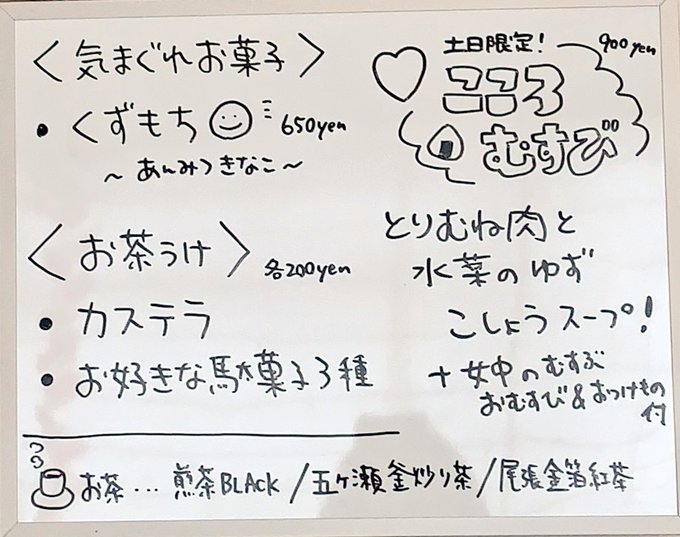 〈気まぐれお菓子〉
• くずもち 650yen
〜あんみつきなこ〜
〈お茶うけ〉各200yen
• カステラ
• お好きな駄菓子3種
土日限定! 900yen
こころ
むすび
とりむね肉と
水菜のゆず
こしょうスープ!
+女中のむすぶ
おむすび&おつけもの
付
お茶... 煎茶BLACK/五ヶ瀬釜炒り茶/尾張金箔紅茶